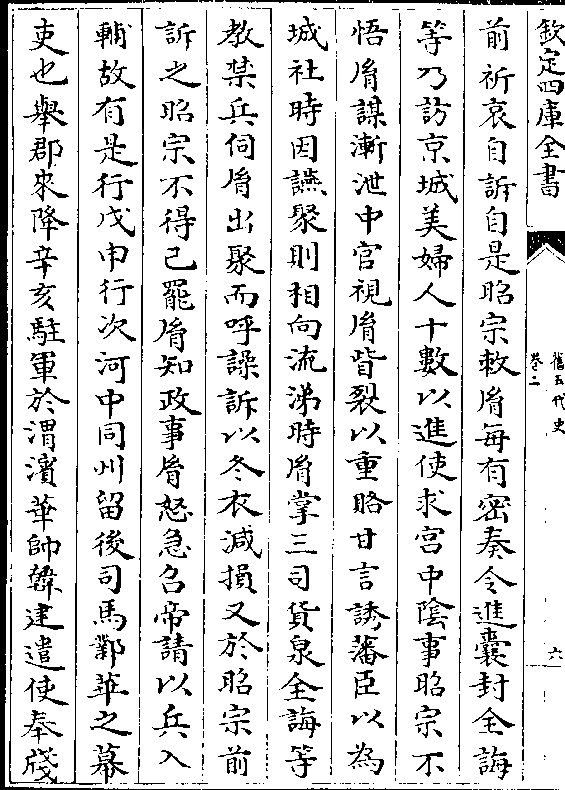 欽定四庫全書
舊五代史
卷二
六
前祈哀自訴自是昭宗敕㣧每有密奏令進囊封全誨
等乃訪京城美婦人十數以進使求宮中陰事昭宗不
悟㣧謀漸泄中官視㣧眥裂以重賂甘言誘藩臣以為
城社時因讌聚則相向流涕時㣧掌三司貨泉全誨等
教禁兵伺㣧出聚而呼譟訴以冬衣減損又於昭宗前
訴之昭宗不得已罷㣧知政事㣧怒急召帝請以兵入
輔故有是行戊申行次河中同州留後司馬鄴華之幕
吏也舉郡來降辛亥駐軍於渭濱華帥韓建遣使奉牋